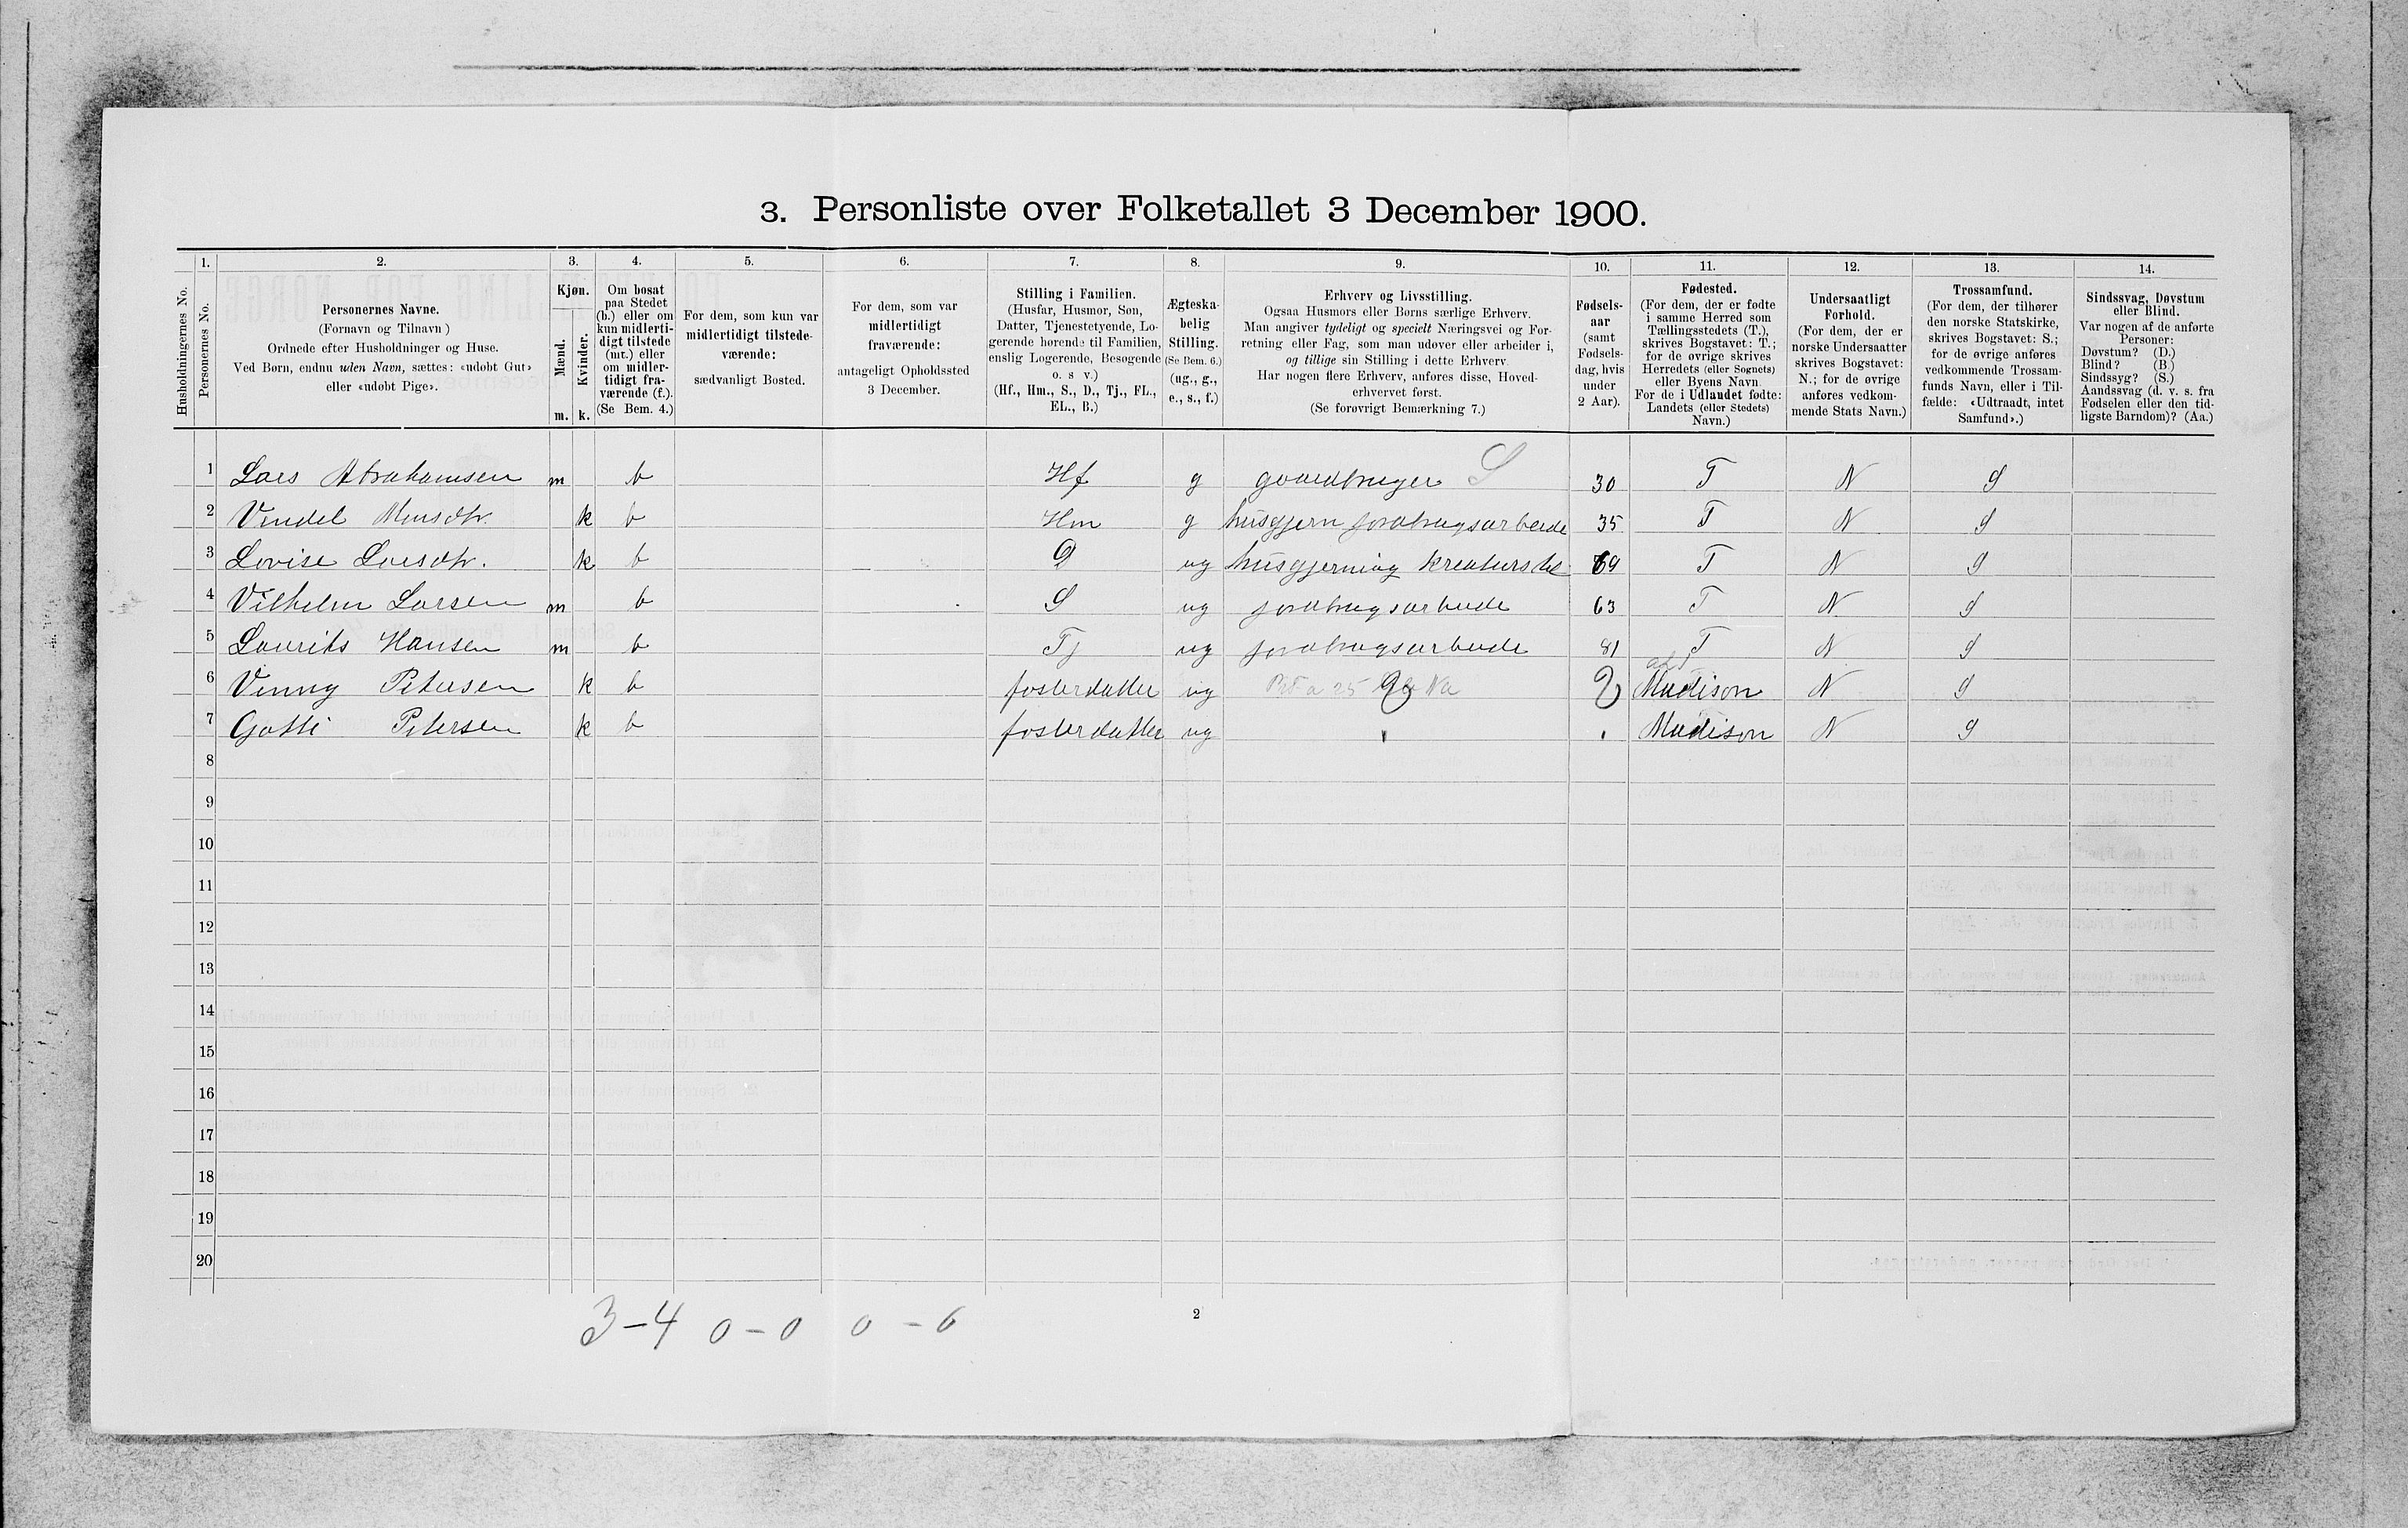 3. Personliste over Folketallet 3 December 1900.
1. 2. 3. 4. 5. 6. 7. 8. 9. 10. 11. 12. 13. 14.
Husholdningernes No.
Personernes No.
Personernes Navne.
(Fornavn og Tilnavn)
Ordnede efter Husholdninger og Huse.
Ved Børn, endnu uden Navn, sættes: «udøbt Gut»
eller «udøbt Pige».
Kjøn.
Mænd.
Kvinder.
m. k.
Om bosat
paa Stedet
(b.) eller om
kun midlerti-
digt tilstede
(mt.) eller
om midler-
tidigt fra-
værende (f.).
(Se Bem. 4.)
For dem, som kun var
midlertidigt tilstede-
værende:
sædvanligt Bosted.
For dem, som var
midlertidigt
fraværende:
antageligt Opholdssted
3 December.
Stilling i Familien.
(Husfar, Husmor, Søn,
Datter, Tjenestetyende, Lo-
gerende hørende til Familien,
enslig Logerende, Besøgende
o. s v.)
(Hf., Hm., S., D., Tj., FL.,
EL., B.)
Ægteska-
belig
Stilling.
(Se Bem. 6.)
(ug., g.,
e., s., f.)
Erhverv og Livsstilling.
Ogsaa Husmors eller Børns særlige Erhverv.
Man angiver tydeligt og specielt Næringsvei og For-
retning eller Fag, som man udøver eller arbeider i,
og tillige sin Stilling i dette Erhverv.
Har nogen flere Erhverv, anføres disse, Hoved-
erhvervet først.
(Se forøvrigt Bemærkning 7.)
Fødsels-
aar
(samt
Fødsels-
dag, hvis
under
2 Aar).
Fødested.
(For dem, der er fødte
i samme Herred som
Tællingsstedets (T.),
skrives Bogstavet: T.;
for de øvrige skrives
Herredets (eller Sognets)
eller Byens Navn.
For de i Udlandet fødte:
Landets (eller Stedets)
Navn.)
Undersaatligt
Forhold.
(For dem, der er
norske Undersaatter
skrives Bogstavet:
N.; for de øvrige
anføres vedkom-
mende Stats Navn.)
Trossamfund.
(For dem, der tilhører
den norske Statskirke,
skrives Bogstavet: S.;
for de øvrige anføres
vedkommende Trossam-
funds Navn, eller i Til-
fælde: «Udtraadt, intet
Samfund».)
Sindssvag, Døvstum
eller Blind.
Var nogen af de anførte
Personer:
Døvstum? (D.)
Blind? (B.)
Sindssyg? (S.)
Aandssvag (d. v. s. fra
Fødselen eller den tid-
ligste Barndom)? (Aa.)
1 Lars Abrahamsen m b Hf g gaardbruger S 30 T N S
2 Vendel Monsdtr. k b Hm g husgjern jordbrugsarbeide 35 T N S
3 Lovise Larsdtr. k b D ug husgjerning kreaturstel 69 T N S
4 Vilhelm Larsen m b S ug jordbrugsarbeide 63 T N S
5 Laurits Hansen m b Tj ug jordbrugsarbeide 81 T N S
6 Venny Petersen k b fosterdatter ug Madison N S
7 Gatti Petersen k b fosterdatter ug Madison N S
8
9
10
11
12
13
14
15
16
17
18
19
20
3-4 0-0 0-6
2